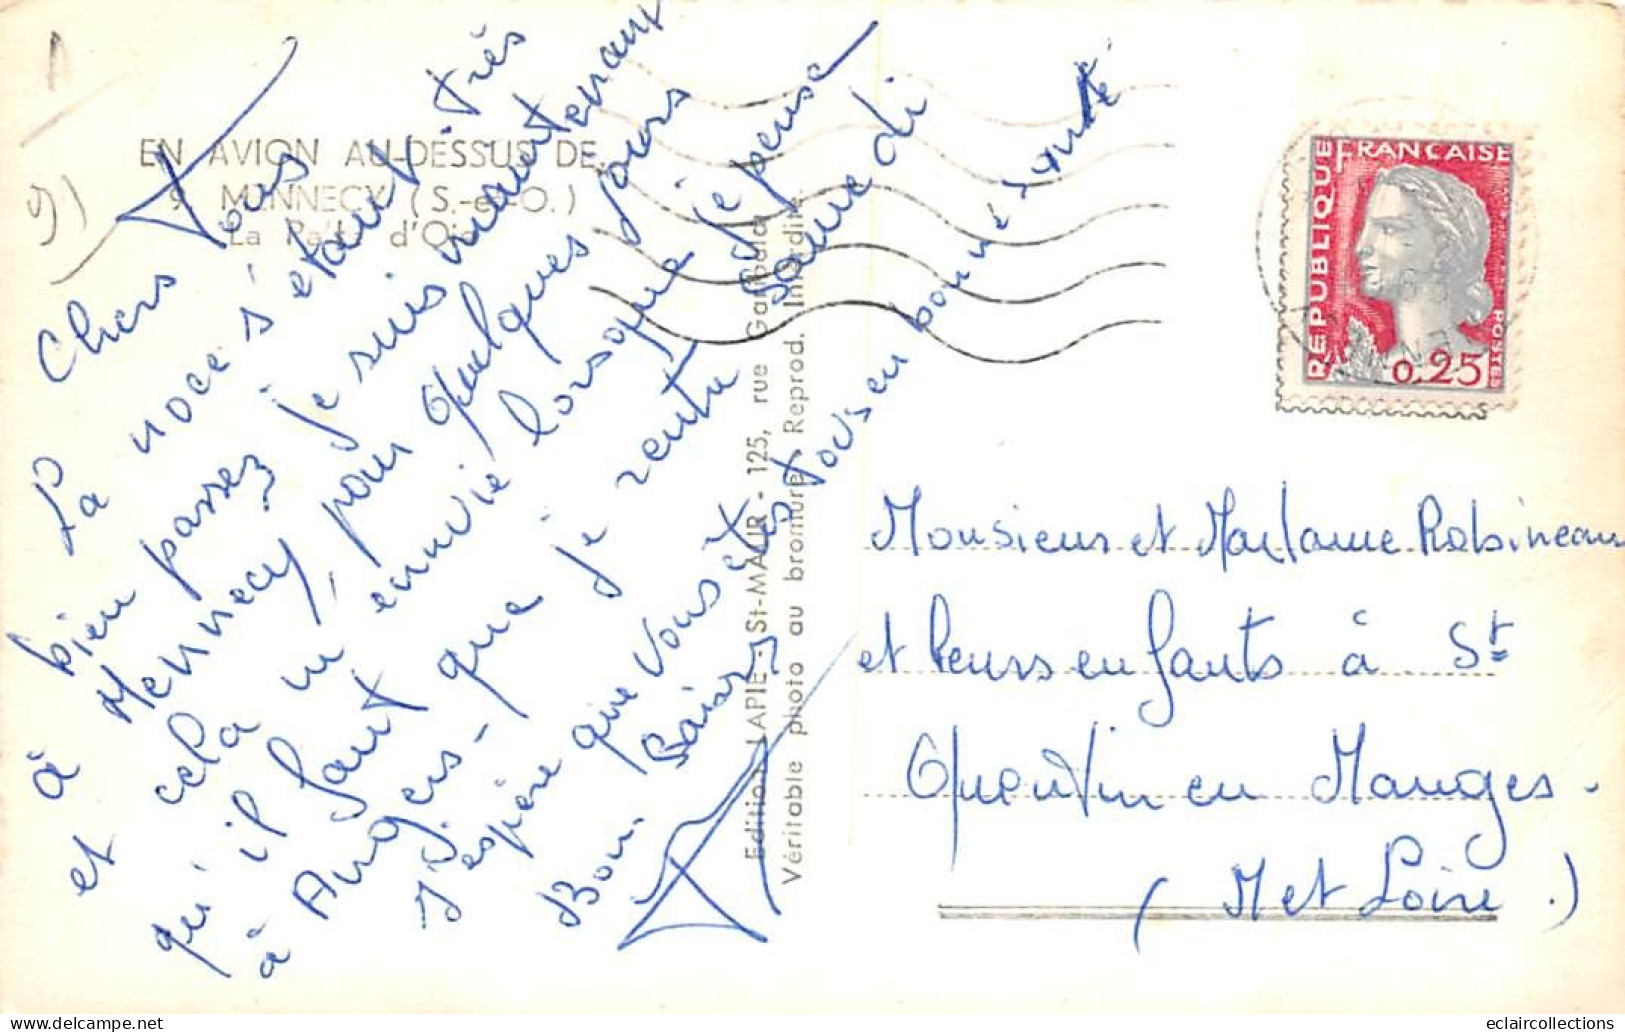 A
9)
EN AVION AU-DESSUS DE
9 MENNECY (S.-et-O.)
La Patte d'Oie
Chers Tous
La noce s'étant très
bien passez je suis maintenant
à Mennecy, pour quelques jours
et cela m'ennuie lorsque je pense
qu'il faut que je rentre samedi
à Angers -
J'espère que vous êtes tous en bonne santé
Bons Baisers
Edition LAPIE - St-MAUR - 125, rue Garibaldi
Véritable photo au bromure - Reprod. Interdite.
RÉPUBLIQUE FRANÇAISE
POSTES
0,25
Monsieur et Madame Robineau
et leurs enfants à St
Quentin en Mauges.
(M et Loire.)
eclaircollections